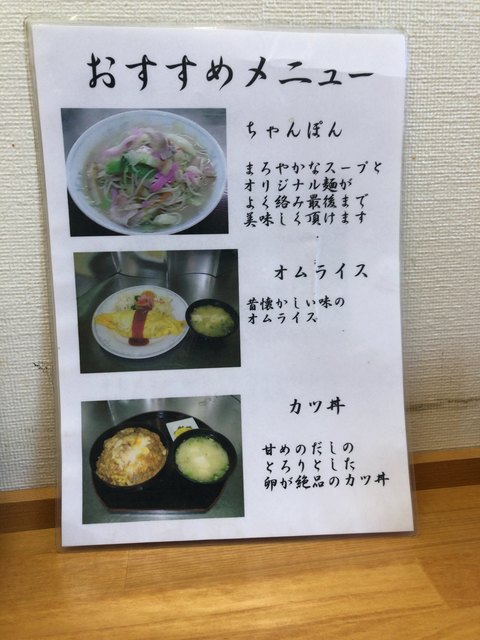 おすすめメニュー
ちゃんぽん
まろやかなスープと
オリジナル麺が
よく絡み最後まで
美味しく頂けます
オムライス
昔懐かしい味の
オムライス
カツ丼
甘めのだしの
とろりとした
卵が絶品のカツ丼